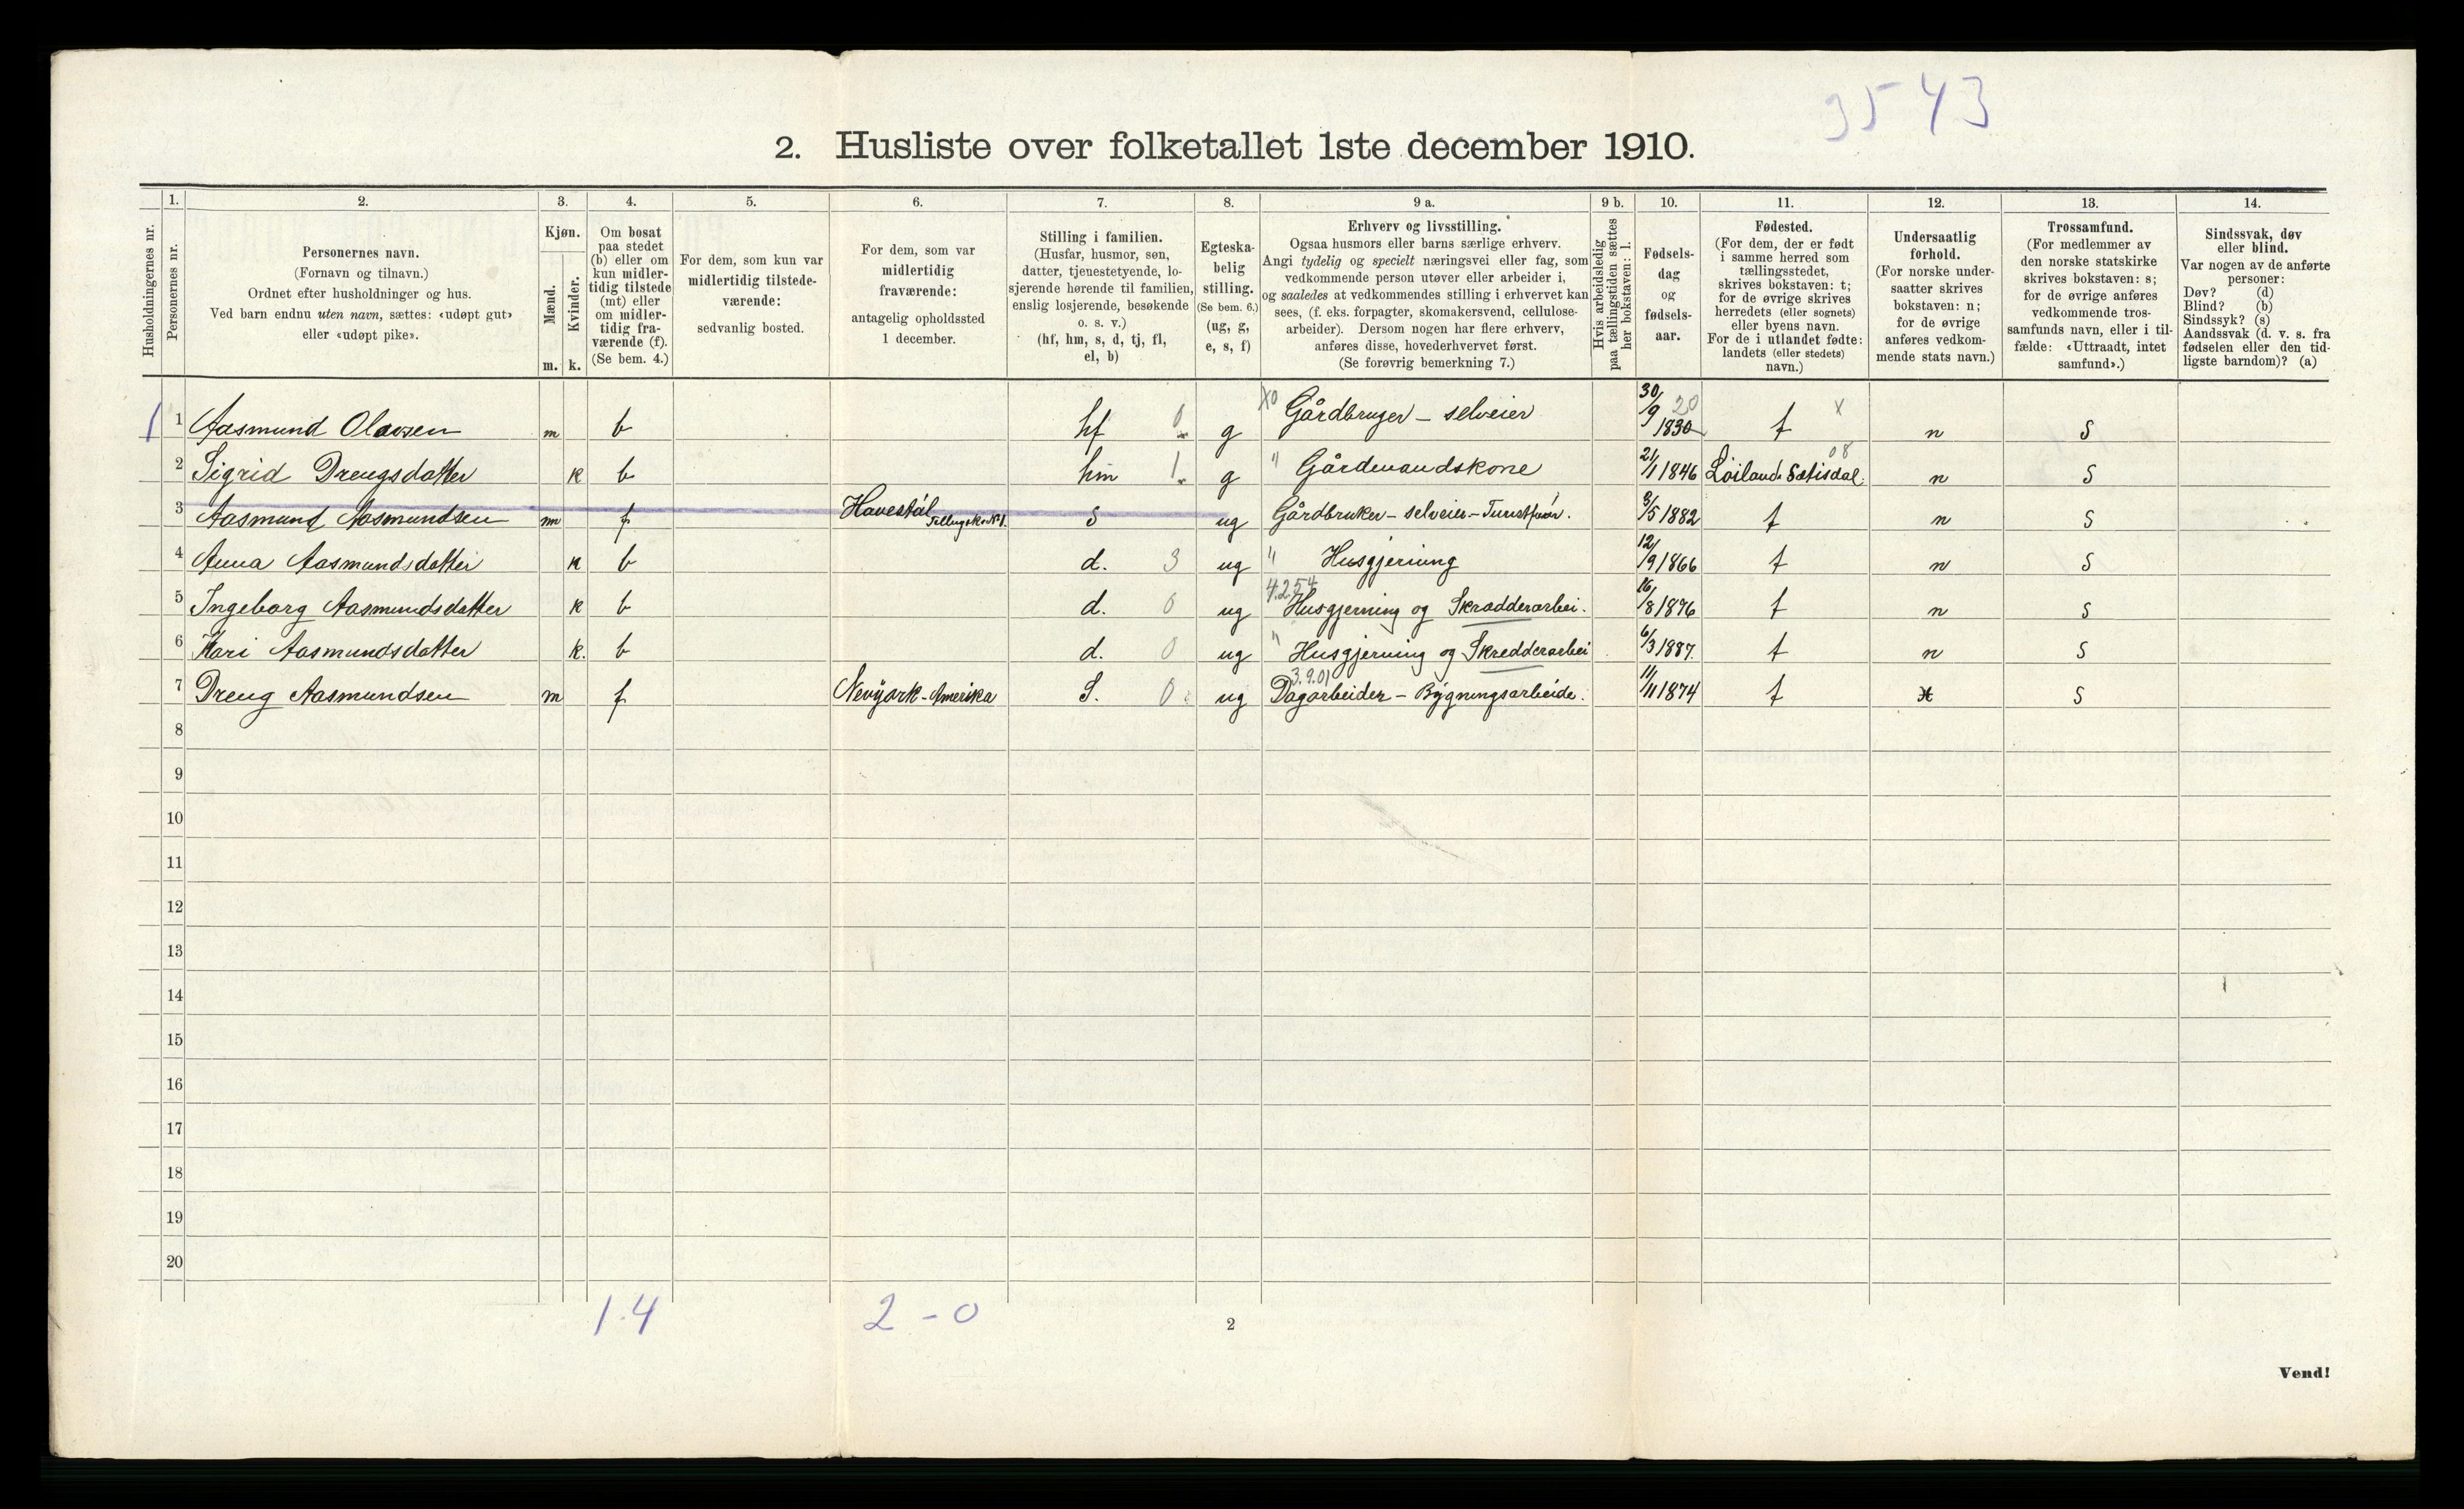 3543
2. Husliste over folketallet 1ste december 1910.
1. 2. 3. 4. 5. 6. 7. 8. 9 a. 9 b. 10. 11. 12. 13. 14.
Husholdningernes nr.
Personernes nr.
Personernes navn.
(Fornavn og tilnavn.)
Ordnet efter husholdninger og hus.
Ved barn endnu uten navn, sættes: «udøpt gut»
eller «udøpt pike».
Kjøn.
Mænd.
Kvinder.
m. k.
Om bosat
paa stedet
(b) eller om
kun midler-
tidig tilstede
(mt) eller
om midler-
tidig fra-
værende (f).
(Se bem. 4.)
For dem, som kun var
midlertidig tilstede-
værende:
sedvanlig bosted.
For dem, som var
midlertidig
fraværende:
antagelig opholdssted
1 december.
Stilling i familien.
(Husfar, husmor, søn,
datter, tjenestetyende, lo-
sjerende hørende til familien,
enslig losjerende, besøkende
o. s. v.)
(hf, hm, s, d, tj, fl,
el, b)
Egteska-
belig
stilling.
(Se bem. 6.)
(ug, g,
e, s, f)
Erhverv og livsstilling.
Ogsaa husmors eller barns særlige erhverv.
Angi tydelig og specielt næringsvei eller fag, som
vedkommende person utøver eller arbeider i,
og saaledes at vedkommendes stilling i erhvervet kan
sees, (f. eks. forpagter, skomakersvend, cellulose-
arbeider). Dersom nogen har flere erhverv,
anføres disse, hovederhvervet først.
(Se forøvrig bemerkning 7.)
Hvis arbeidsledig
paa tællingstiden sættes
her bokstaven: l.
Fødsels-
dag
og
fødsels-
aar.
Fødested.
(For dem, der er født
i samme herred som
tællingsstedet,
skrives bokstaven: t;
for de øvrige skrives
herredets (eller sognets)
eller byens navn.
For de i utlandet fødte:
landets (eller stedets)
navn.)
Undersaatlig
forhold.
(For norske under-
saatter skrives
bokstaven: n;
for de øvrige
anføres vedkom-
mende stats navn.)
Trossamfund.
(For medlemmer av
den norske statskirke
skrives bokstaven: s;
for de øvrige anføres
vedkommende tros-
samfunds navn, eller i til-
fælde: «Uttraadt, intet
samfund».)
Sindssvak, døv
eller blind.
Var nogen av de anførte
personer:
Døv? (d)
Blind? (b)
Sindssyk? (s)
Aandssvak (d. v. s. fra
fødselen eller den tid-
ligste barndom)? (a)
1 1 Aasmund Olavsen m b hf 0 g X0 Gårdbruger - selveier 30/9 1830 20 t X n S
2 Sigrid Drengsdatter k b hm 1 g " Gårdmandskone 21/1 1846 Löiland Sætisdal. 08 n S
3 Aasmund Aasmundsen m f Hovestål S ug Gårdbruker - selveier - 9/5 1882 t n S
4 Anna Aasmundsdatter k b d. 3 ug " Husgjerning 12/9 1866 t n S
4.2.54
5 Ingeborg Aasmundsdatter k b d. 0 ug Husgjerning og Skrædderarbei. 16/8 1876 t n S
6 Kari Aasmundsdatter k. b d. 0 ug " Husgjerning og Skredderarbei 6/3 1887. t n S
3.9.01
7 Dreng Aasmundsen m f Nevÿork - Amerika S. 0 ug Dagarbeider - Bÿgningsarbeide. 11/11 1874 t S
8
9
10
11
12
13
14
15
16
17
18
19
20
1.4 2 - 0
2
Vend!